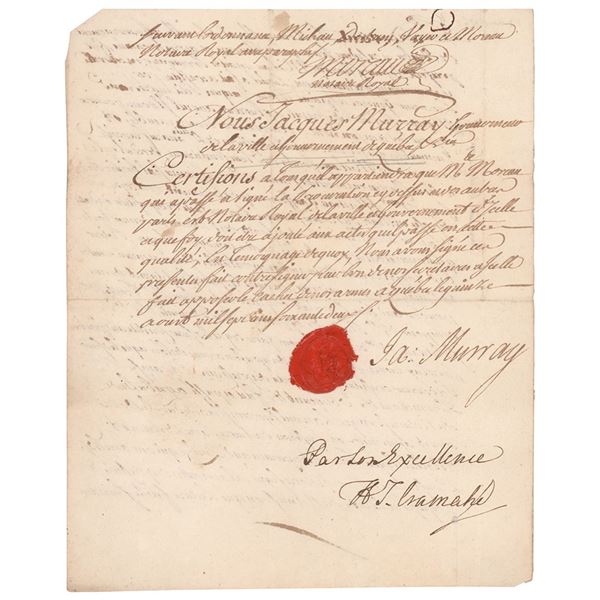 Suivant L'ordonnance, Mikau et Moreau
Notaire Royal avec paraphe
Moreau
Notaire Royal
Nous Jacques Murray Gouverneur
de la ville & Gouvernement de quebec
Certifions a tous qu'il appartiendra que Me. Moreau
qui a passé & signé la procuration cy dessus & des autres
parts est Notaire Royal de la ville & Gouvernement d'Icelle
et que foy doit être ajoutée aux actes qu'il passe en cette
qualité; En Temoignage de quoy, Nous avons signé ces
presentes fait contresigner par l'un de nos secretaires & a Icelle
fait apposer le cachet de nos armes a quebec le quinze
aoust mil sept cens soixante deux
Ja: Murray
Par Son Excellence
H T. Cramahé